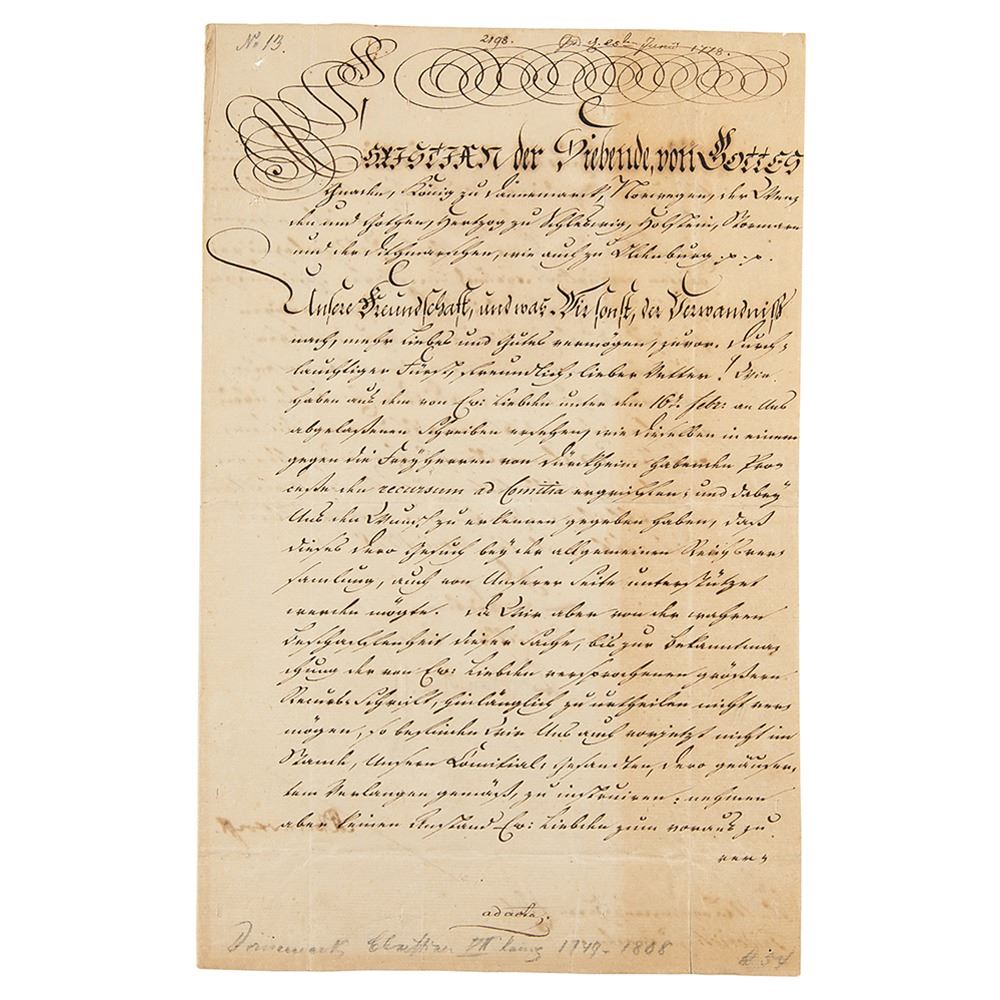 No 13.
2198. 1778.
CHRISTIAN der Siebende, von GOTTES
Gnaden, König zu Dännemarck, Norwegen, der Wen,
den und Gothen, Hertzog zu Schleswig, Holstein, Stormarn
und der Ditmarschen, wie auch zu Oldenburg p. p.
Unsere Freundschaft, und was Wir sonst, der Verwandniß
nach, mehr Liebes und Gutes vermögen, zuvor. Durch,
lauchtiger Fürst, freundlich, lieber Vetter! Wir
haben aus dem von Ew: Liebden unter dem 16ten Febr: an Uns
abgelaßenen Schreiben ersehen, wie dieselben in einem
gegen die Freyherren von Dürckheim habenden Pro,
ceße den recursum ad Comitia ergriffen; und dabey
Uns den Wunsch zu erkennen gegeben haben, daß
dieses dero Gesuch bey der allgemeinen Reichsver,
samlung, auch von Unserer Seite unterstützet
werden mögte. Da Wir aber von der wahren
Beschaffenheit dieser Sache, bis zur Bekanntma,
chung der von Ew: Liebden versprochenen größern
Recurs-Schrift, hinlänglich zu urtheilen nicht ver,
mögen; so befinden Wir Uns auch vorjetzt nicht im
Stande, Unsern Comitial, Gesandten, dero geäußer,
tem Verlangen gemäß, zu instruiren; nehmen
aber keinen Anstand Ew: Liebden zum voraus zu
ver,
ad acta.
Dännemark Christian VII König 1749-1808